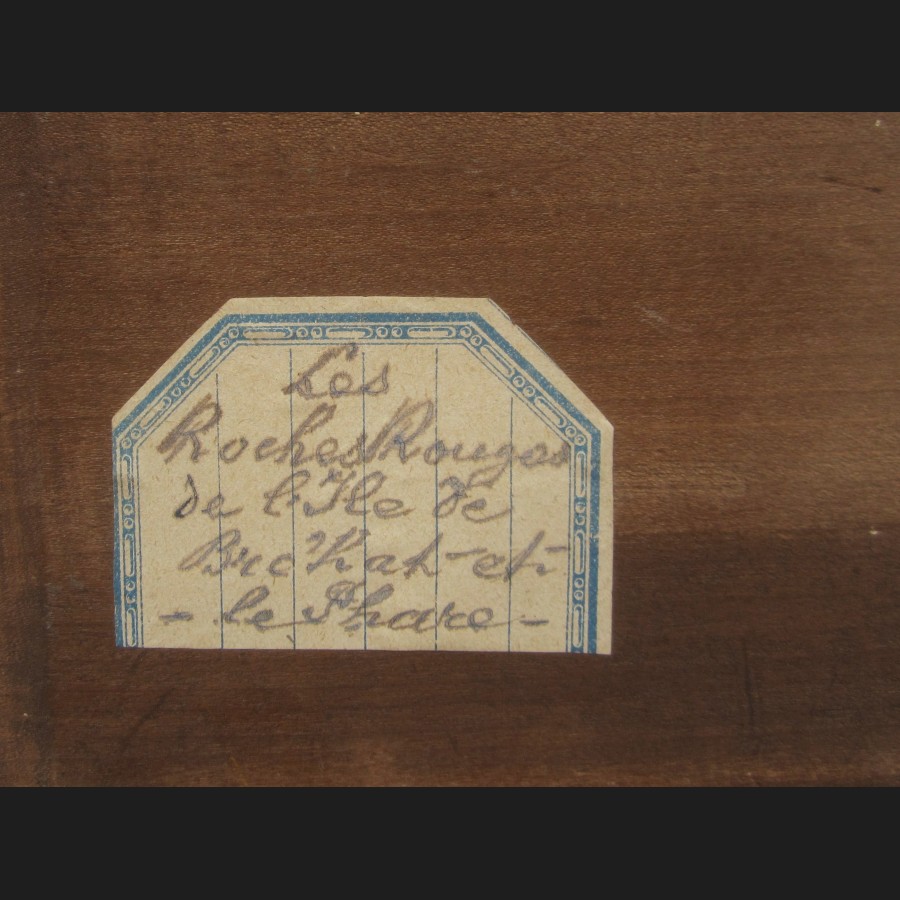 Les
Roches Rouges
de l'Ile de
Bre'hat et
- le Phare -